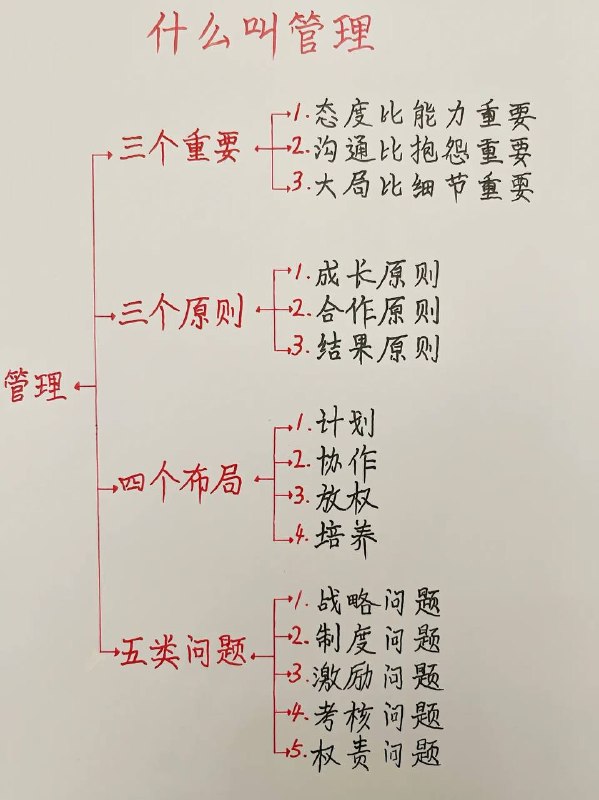 什么叫管理
管理
三个重要
1.态度比能力重要
2.沟通比抱怨重要
3.大局比细节重要
三个原则
1.成长原则
2.合作原则
3.结果原则
四个布局
1.计划
2.协作
3.放权
4.培养
五类问题
1.战略问题
2.制度问题
3.激励问题
4.考核问题
5.权责问题